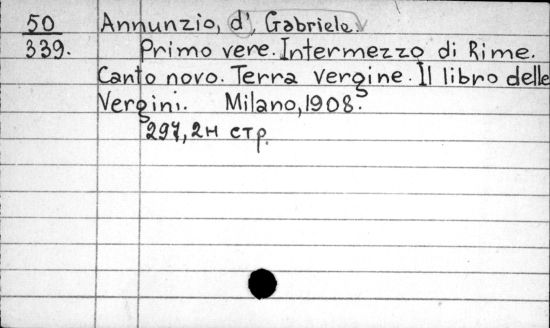 50 Annunzio, d', Gabriele.
339. Primo vere. Intermezzo di Rime.
Canto novo. Terra vergine. Il libro delle
Vergini. Milano, 1908.
297, 2н стр.